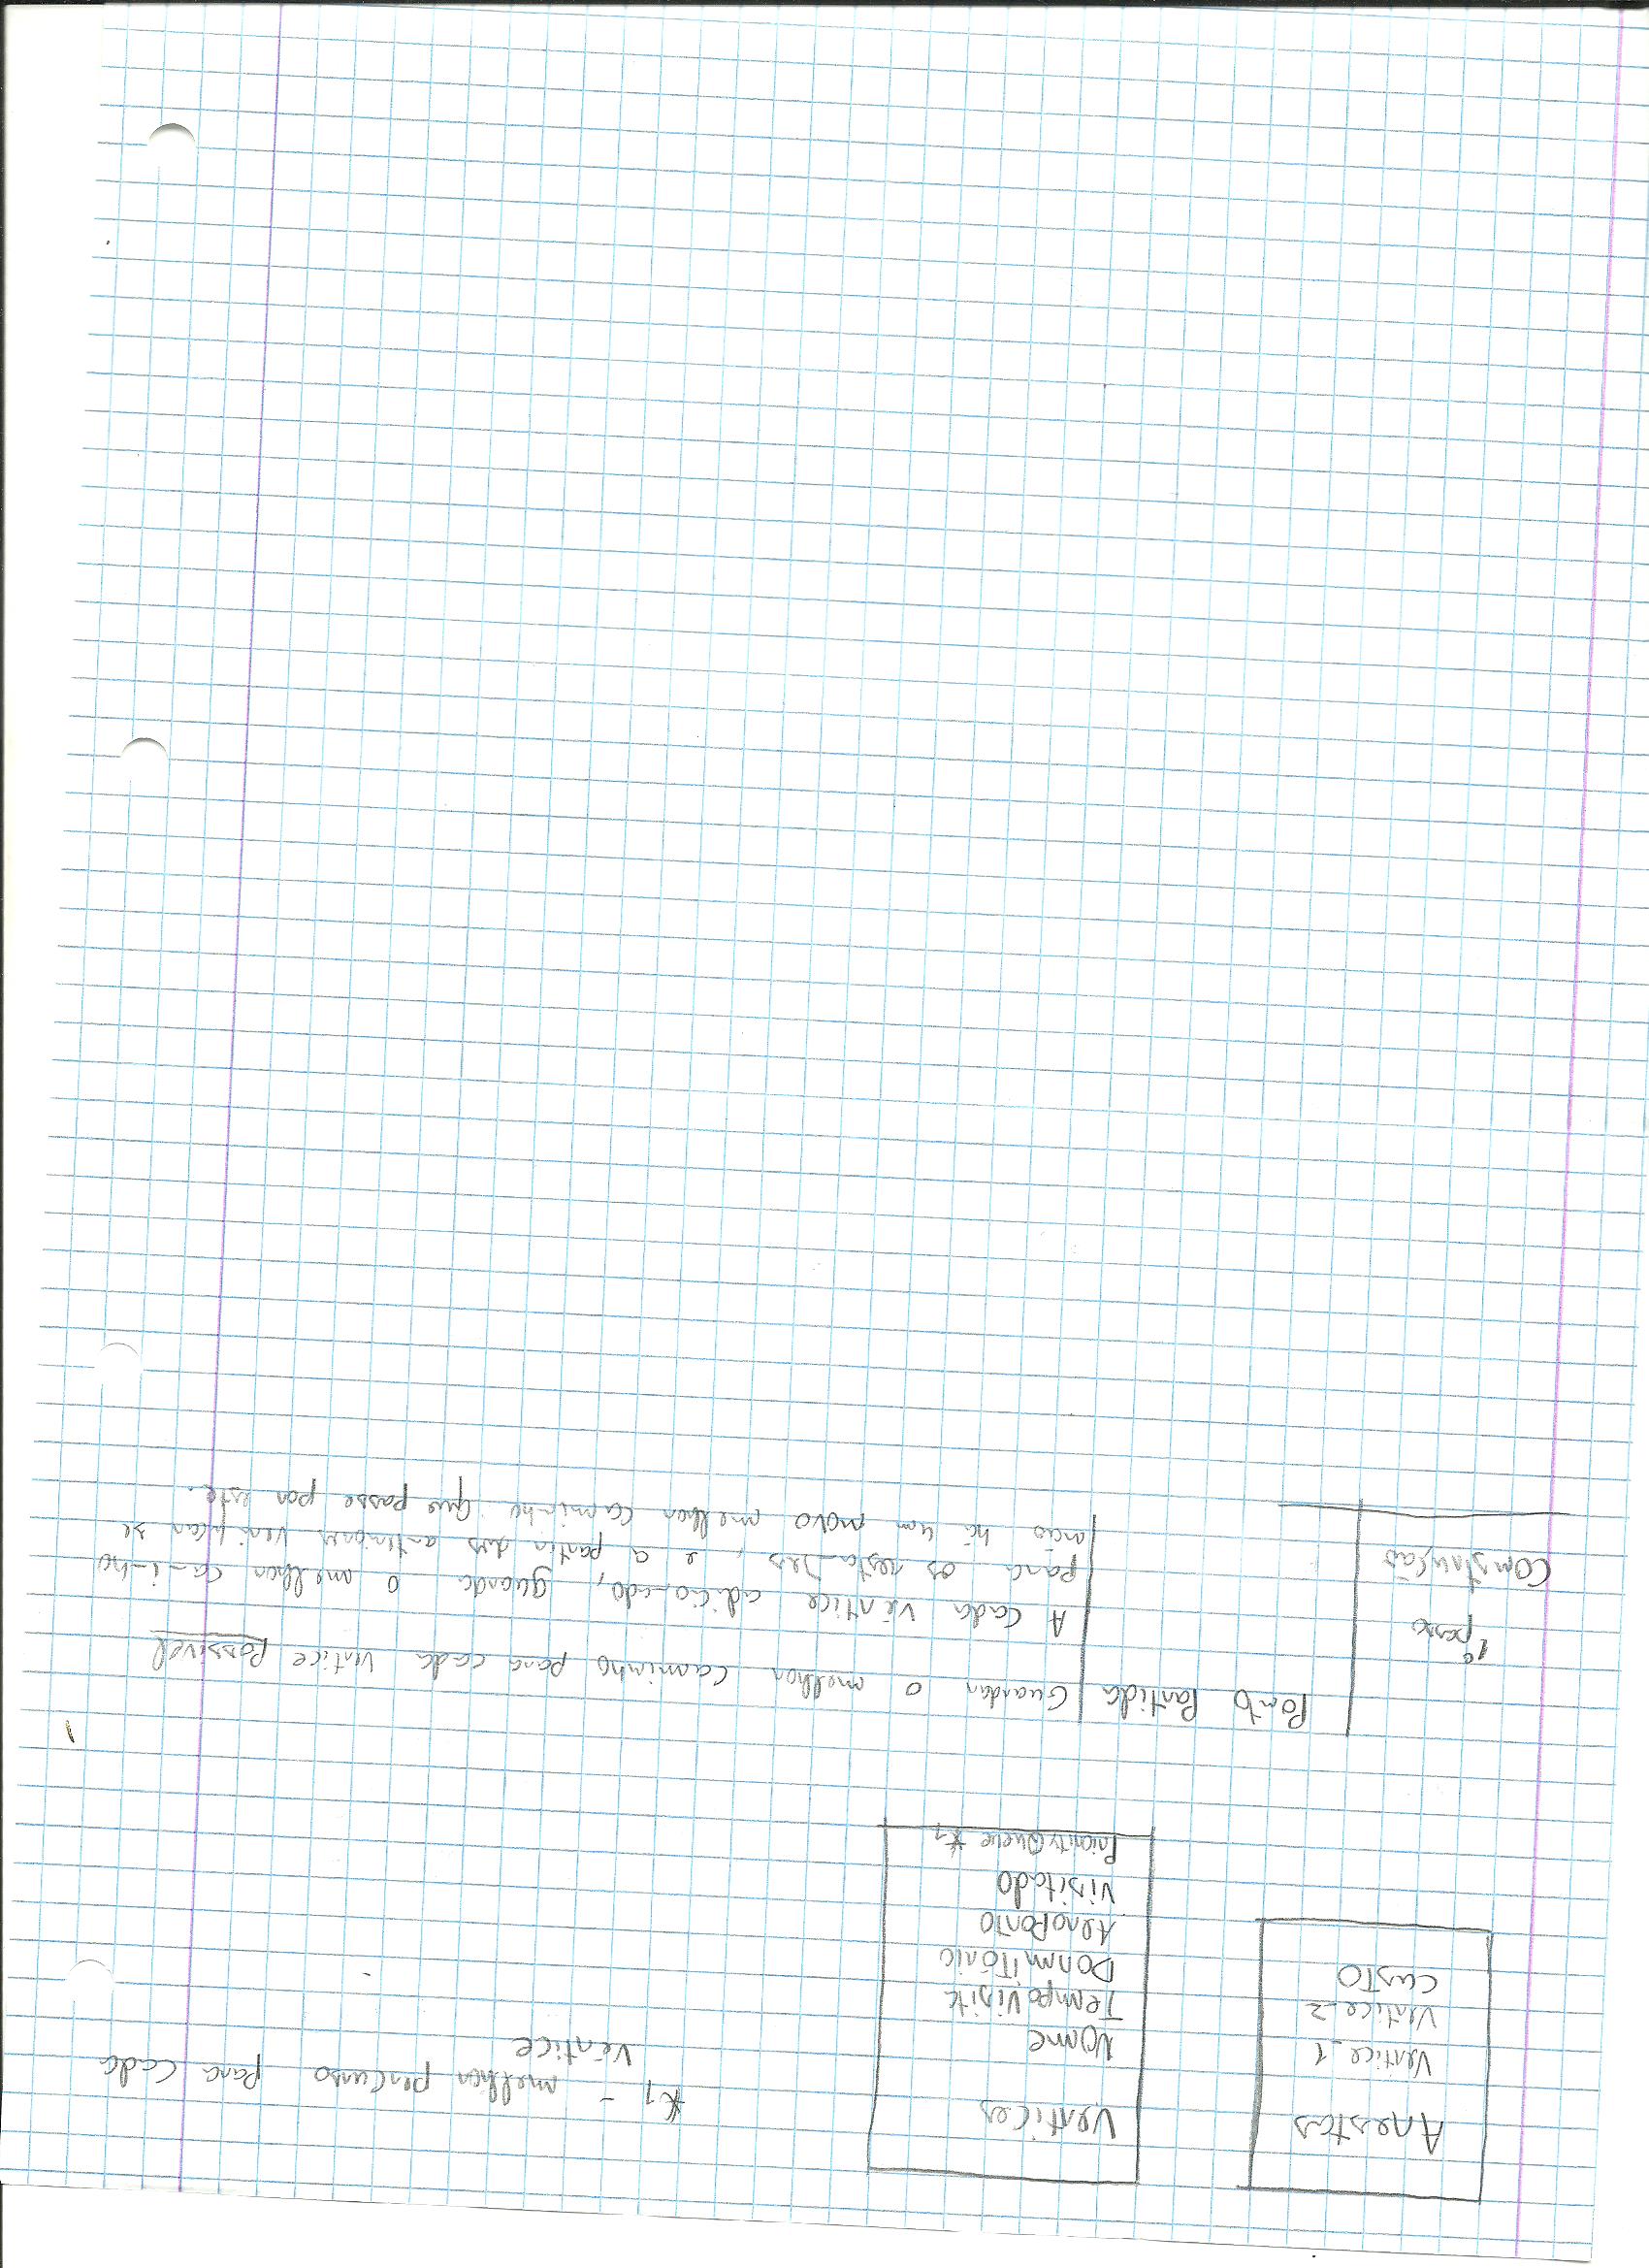 Arestas
Vertice_1
Vertice_2
Custo
Vertices
Nome
TempoVisita
Dormitório
Aeroporto
Visitado
PriorityQueue *1
*1 - melhor percurso para cada
vértice
1º passo
Construção
Ponto Partida
Guardar o melhor caminho para cada vertice Possível
A cada vértice adicionado, guarda o melhor caminho
para os restantes, e a partir dos anteriores verificar se
não há um novo melhor caminho que passe por este.